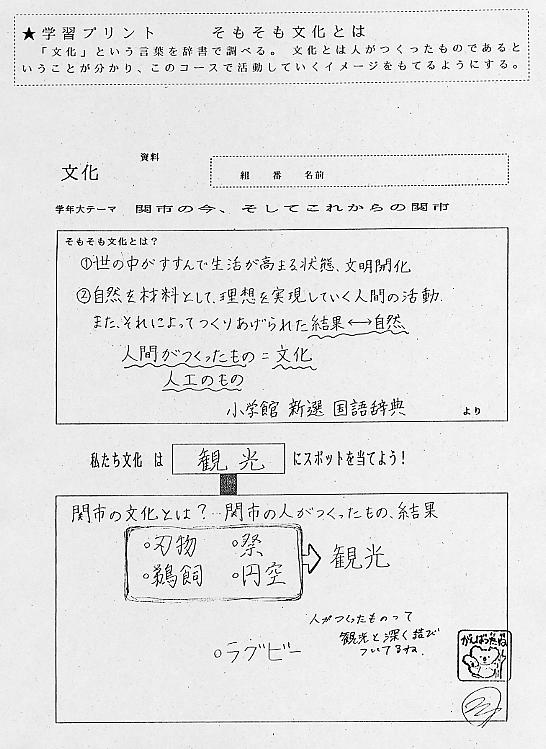 ★学習プリント　そもそも文化とは
「文化」という言葉を辞書で調べる。 文化とは人がつくったものであると
いうことが分かり、このコースで活動していくイメージをもてるようにする。
資料
文化
組　番　名前
学年大テーマ　関市の今、そしてこれからの関市
そもそも文化とは？
①世の中がすすんで生活が高まる状態、文明開化
②自然を材料として、理想を実現していく人間の活動.
また、それによってつくりあげられた結果⟷自然
人間がつくったもの＝文化
人工のもの
小学館 新選 国語辞典　より
私たち文化 は 観光 にスポットを当てよう！
関市の文化とは？…関市の人がつくったもの、結果
○刃物　○祭
○鵜飼　○円空
⇨観光
人がつくったものって
観光と深く結び
ついてるね.
○ラグビー
がんばったね